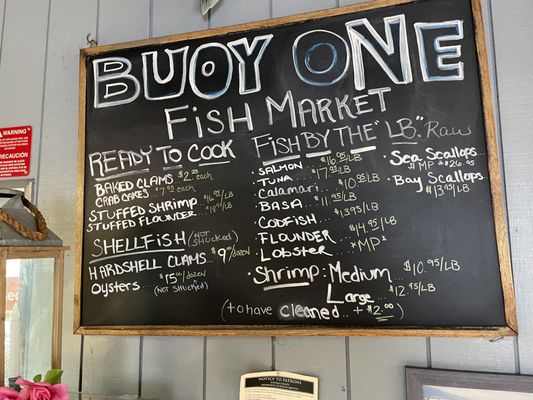 BUOY ONE
FISH MARKET
READY TO COOK
BAKED CLAMS $2.25 each
CRAB CAKES $7.95 each
STUFFED SHRIMP
STUFFED FLOUNDER
SHELLFISH (NOT SHUCKED)
HARDSHELL CLAMS... $9.00/dozen
Oysters... $15.00/DOZEN
(NOT SHUCKED)
FISH BY THE "LB." Raw
SALMON $16.95/LB
TUNA $17.95/LB
Calamari $10.95/LB
BASA $11.95/LB
CODFISH $13.95/LB
FLOUNDER $14.95/LB
Lobster *MP*
Shrimp: Medium $10.95/LB
Large... $12.95/LB
(to have cleaned.. + $2.00)
Sea Scallops
*MP* $26.95
Bay Scallops
$13.95/LB
WARNING
PRECAUCIÓN
NOTICE TO PATRONS